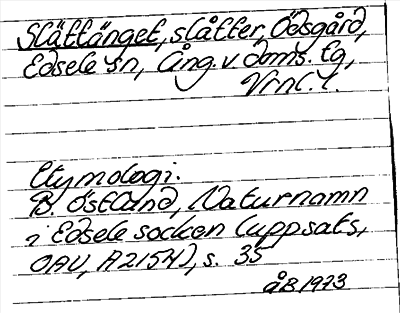 Slättänget, slåtter, Ödsgård,
Edsele sn, Ång. v doms. tg,
Vrnl. l.
Etymologi:
B. Östlund, Naturnamn
i Edsele socken (uppsats,
OAU, A2154), s. 35
åB 1973